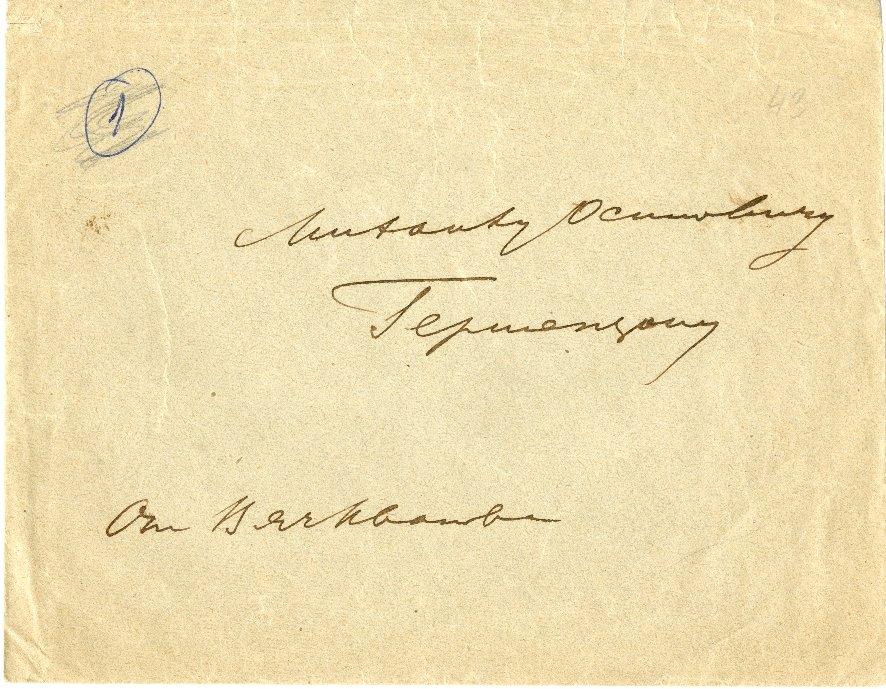 43
1
Михаилу Осиповичу
Гершензону
От Вяч. Иванова